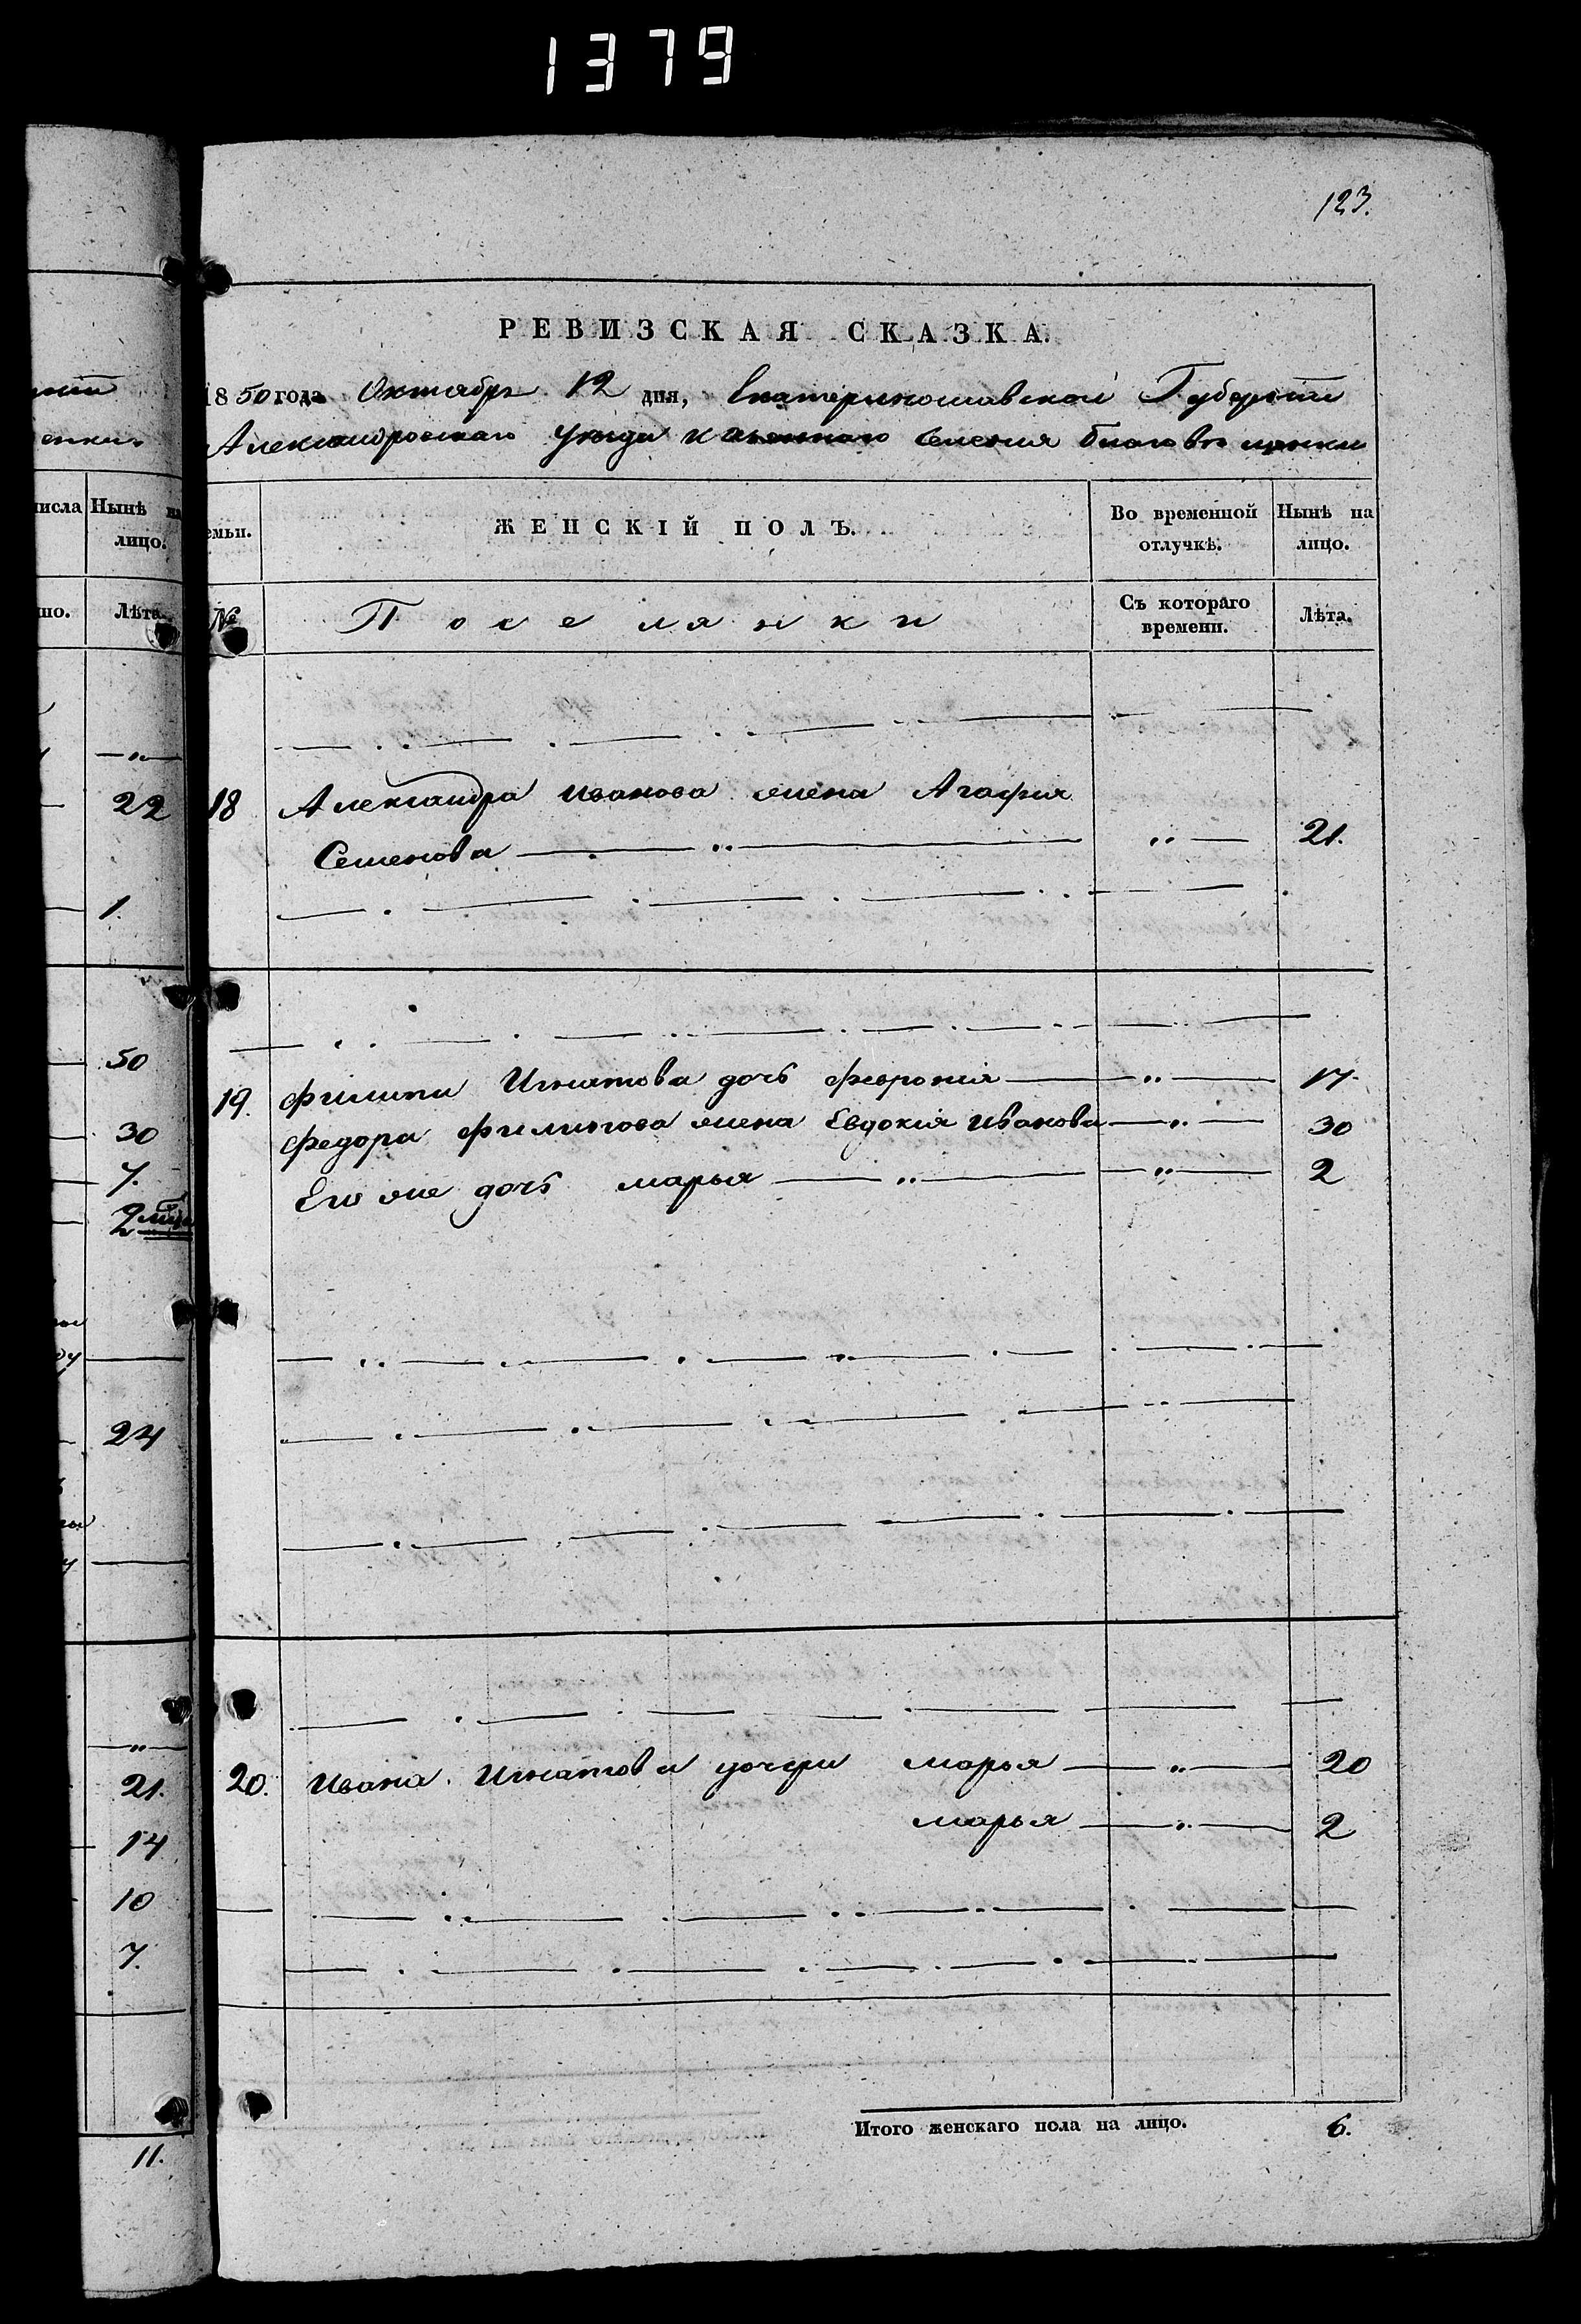 1379
123.
РЕВИЗСКАЯ СКАЗКА.
1850 года Октября 12 дня, Екатеринославской Губернии
Александровскаго уезда казеннаго селения благовещенки
числа
Нынѣ на лицо.
емьи.
ЖЕНСКІЙ ПОЛЪ.
Во временной отлучкѣ.
Нынѣ на лицо.
Лѣта.
№
Поселянки
Съ котораго времени.
Лѣта.
22
18
Александра Иванова жена Агафия
Семенова
21.
1.
50
19.
Филипа Игнатова дочь Феврония
17.
30
Федора Филипова жена Евдокия Иванова
30
7.
Его же дочь марья
2
2
24
20.
Ивана Игнатова дочери марья
20
21.
марья
2
14
10
7.
Итого женскаго пола на лицо.
6.
11.